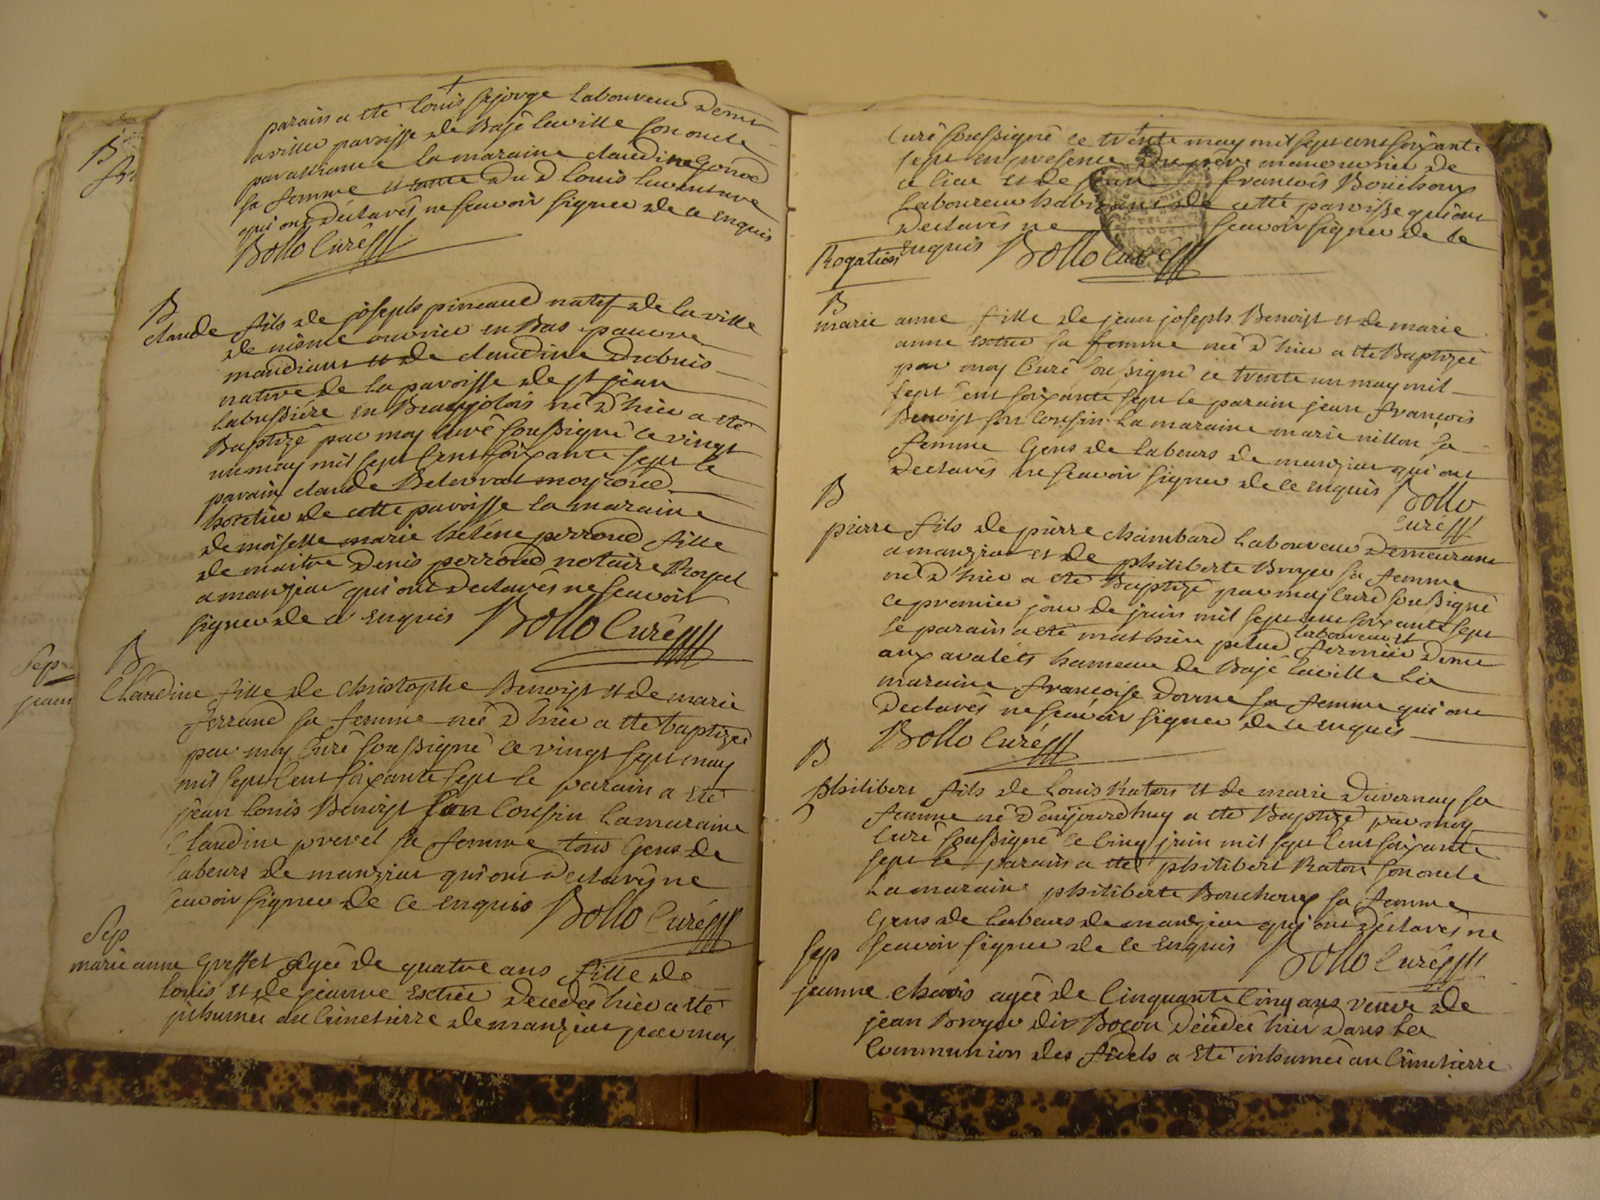 B
parain a été Louis sejorge laboureur demt
a villeu paroisse de Bagé laville son oncle
par alliance la maraine claudine Gonod
sa femme et tante du d Louis laventure
qui ont déclarés ne scavoir signer de ce enquis
Bollo Curé
B
claude fils de joseph pineaud natif de la ville
de nisme ouvrier en Bas pauvre
mandiant et de claudine dubuis
native de la paroisse de st jean
labussière en Beaujolois né d'hier a eté
Baptizé par moy curé soussigné ce vingt
un may mil sept cent soixante sept le
parain claude Beterrat moyroud
hortier de cette paroisse la maraine
demoiselle marie hélène perroud fille
de maitre denis perroud notaire Royal
a manziat qui ont declares ne scavoir
signer de ce enquis Bollo Curé
Sep
jean
B
Claudine fille de Christophe Benoist et de marie
ferrand sa femme née d'hier a eté baptizée
par moy Curé soussigné ce vingt sept may
mil sept cent soixante sept le parain a eté
jean louis Benoist son Cousin la maraine
Claudine prevel sa femme tous Gens de
labeurs de manziat qui ont declarés ne
scavoir signer de ce enquis Bollo Curé
Sep
marie anne Greffet agée de quatre ans fille de
louis et de jeanne Extier decedée hier a eté
inhumée au Cimetierre de manziat par moy
Curé soussigné ce trente may mil sept cent soixante
sept en presence du pere manouvrier de
ce lieu et de jean françois Bouchoux
laboureur habitant de cette paroisse qui ont
declarés ne scavoir signer de ce
enquis Bollo Curé
Rogation
B
marie anne fille de jean joseph Benoist et de marie
anne Extier sa femme née d'hier a eté Baptizée
par moy Curé soussigné ce trente un may mil
sept cent soixante sept le parain jean françois
Benoist son Cousin la maraine marie nillon sa
femme Gens de labeurs de manziat qui ont
declarés ne scavoir signer de ce enquis Bollo
Curé
B
pierre fils de pierre chambard laboureur demeurant
a manziat et de philiberte Buyer sa femme
né d'hier a eté Baptizé par moy Curé soussigné
ce premier jour de juin mil sept cent soixante sept
le parain a eté mathieu pelud laboureur et fermier demt
aux avalets hameau de Bagé laville la
maraine françoise dorme sa femme qui ont
declarés ne scavoir signer de ce enquis
Bollo Curé
B
philibert fils de Louis Raton et de marie duvernay sa
femme né d'aujourd'huy a eté Baptizé par moy
Curé soussigné le Cinq juin mil sept Cent soixante
sept le parain a eté philibert Raton son oncle
La maraine philiberte Bouchoux sa femme
Gens de labeurs de manziat qui ont declarés ne
scavoir signer de ce enquis Bollo Curé
Sep
jeanne chavis agée de Cinquante Cinq ans veuve de
jean Broyer dit Bocon décédée hier dans la
Communion des fidels a eté inhumée au Cimetierre